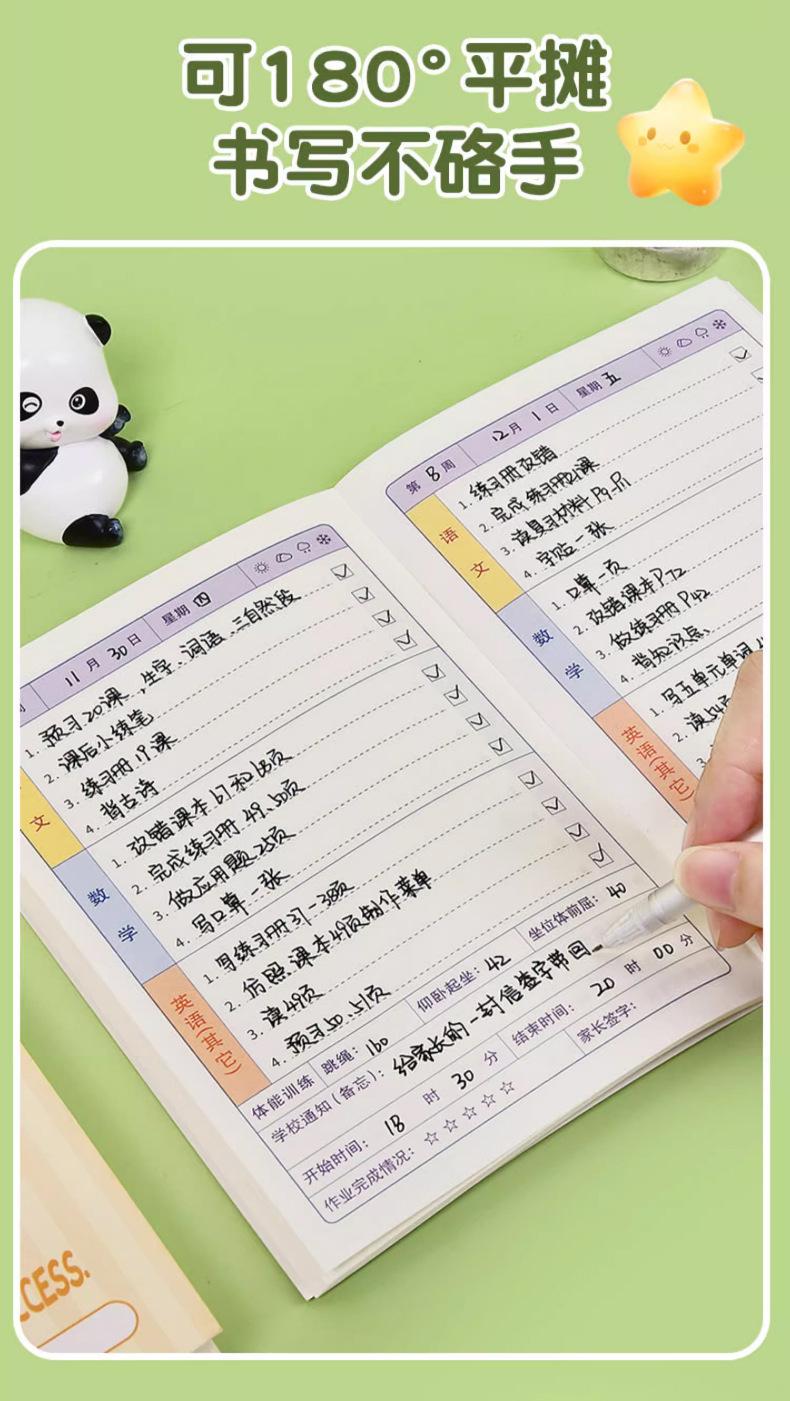 可180°平摊
书写不硌手
11月30日 星期四
文
1. 预习20课，生字、词语、三自然段
2. 课后小练笔
3. 练习册19课
4. 背古诗
数学
1. 改错课本67和68页
2. 完成练习册49、50页
3. 做应用题25页
4. 写口算一张
英语(其它)
1. 写练习册37-38页
2. 仿照课本49页制作菜单
3. 读49页
4. 预习50、51页
体能训练 跳绳：160 仰卧起坐：42 坐位体前屈：40
学校通知(备忘)：给家长的一封信签字带回
开始时间：18时30分 结束时间：20时00分
作业完成情况：☆☆☆☆☆ 家长签字：
第8周 12月1日 星期五
语文
1. 练习册改错
2. 完成练习册21课
3. 读复习材料P9-P11
4. 字帖一张
数学
1. 口算一页
2. 改错课本P72
3. 做练习册P42
4. 背知识点
英语(其它)
1. 写五单元单词
2.
3.
CESS.